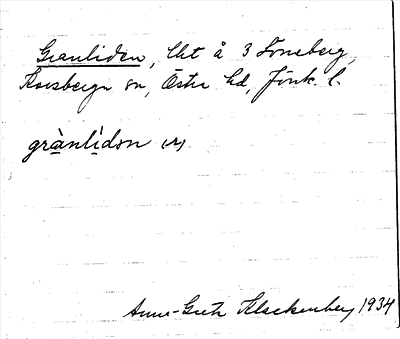 Granliden, lht å 3 Foneberg,
Korsberga sn, Östra hd, Jönk. l.
grànlìdən (r)
Anna-Greta Klackenberg 1934